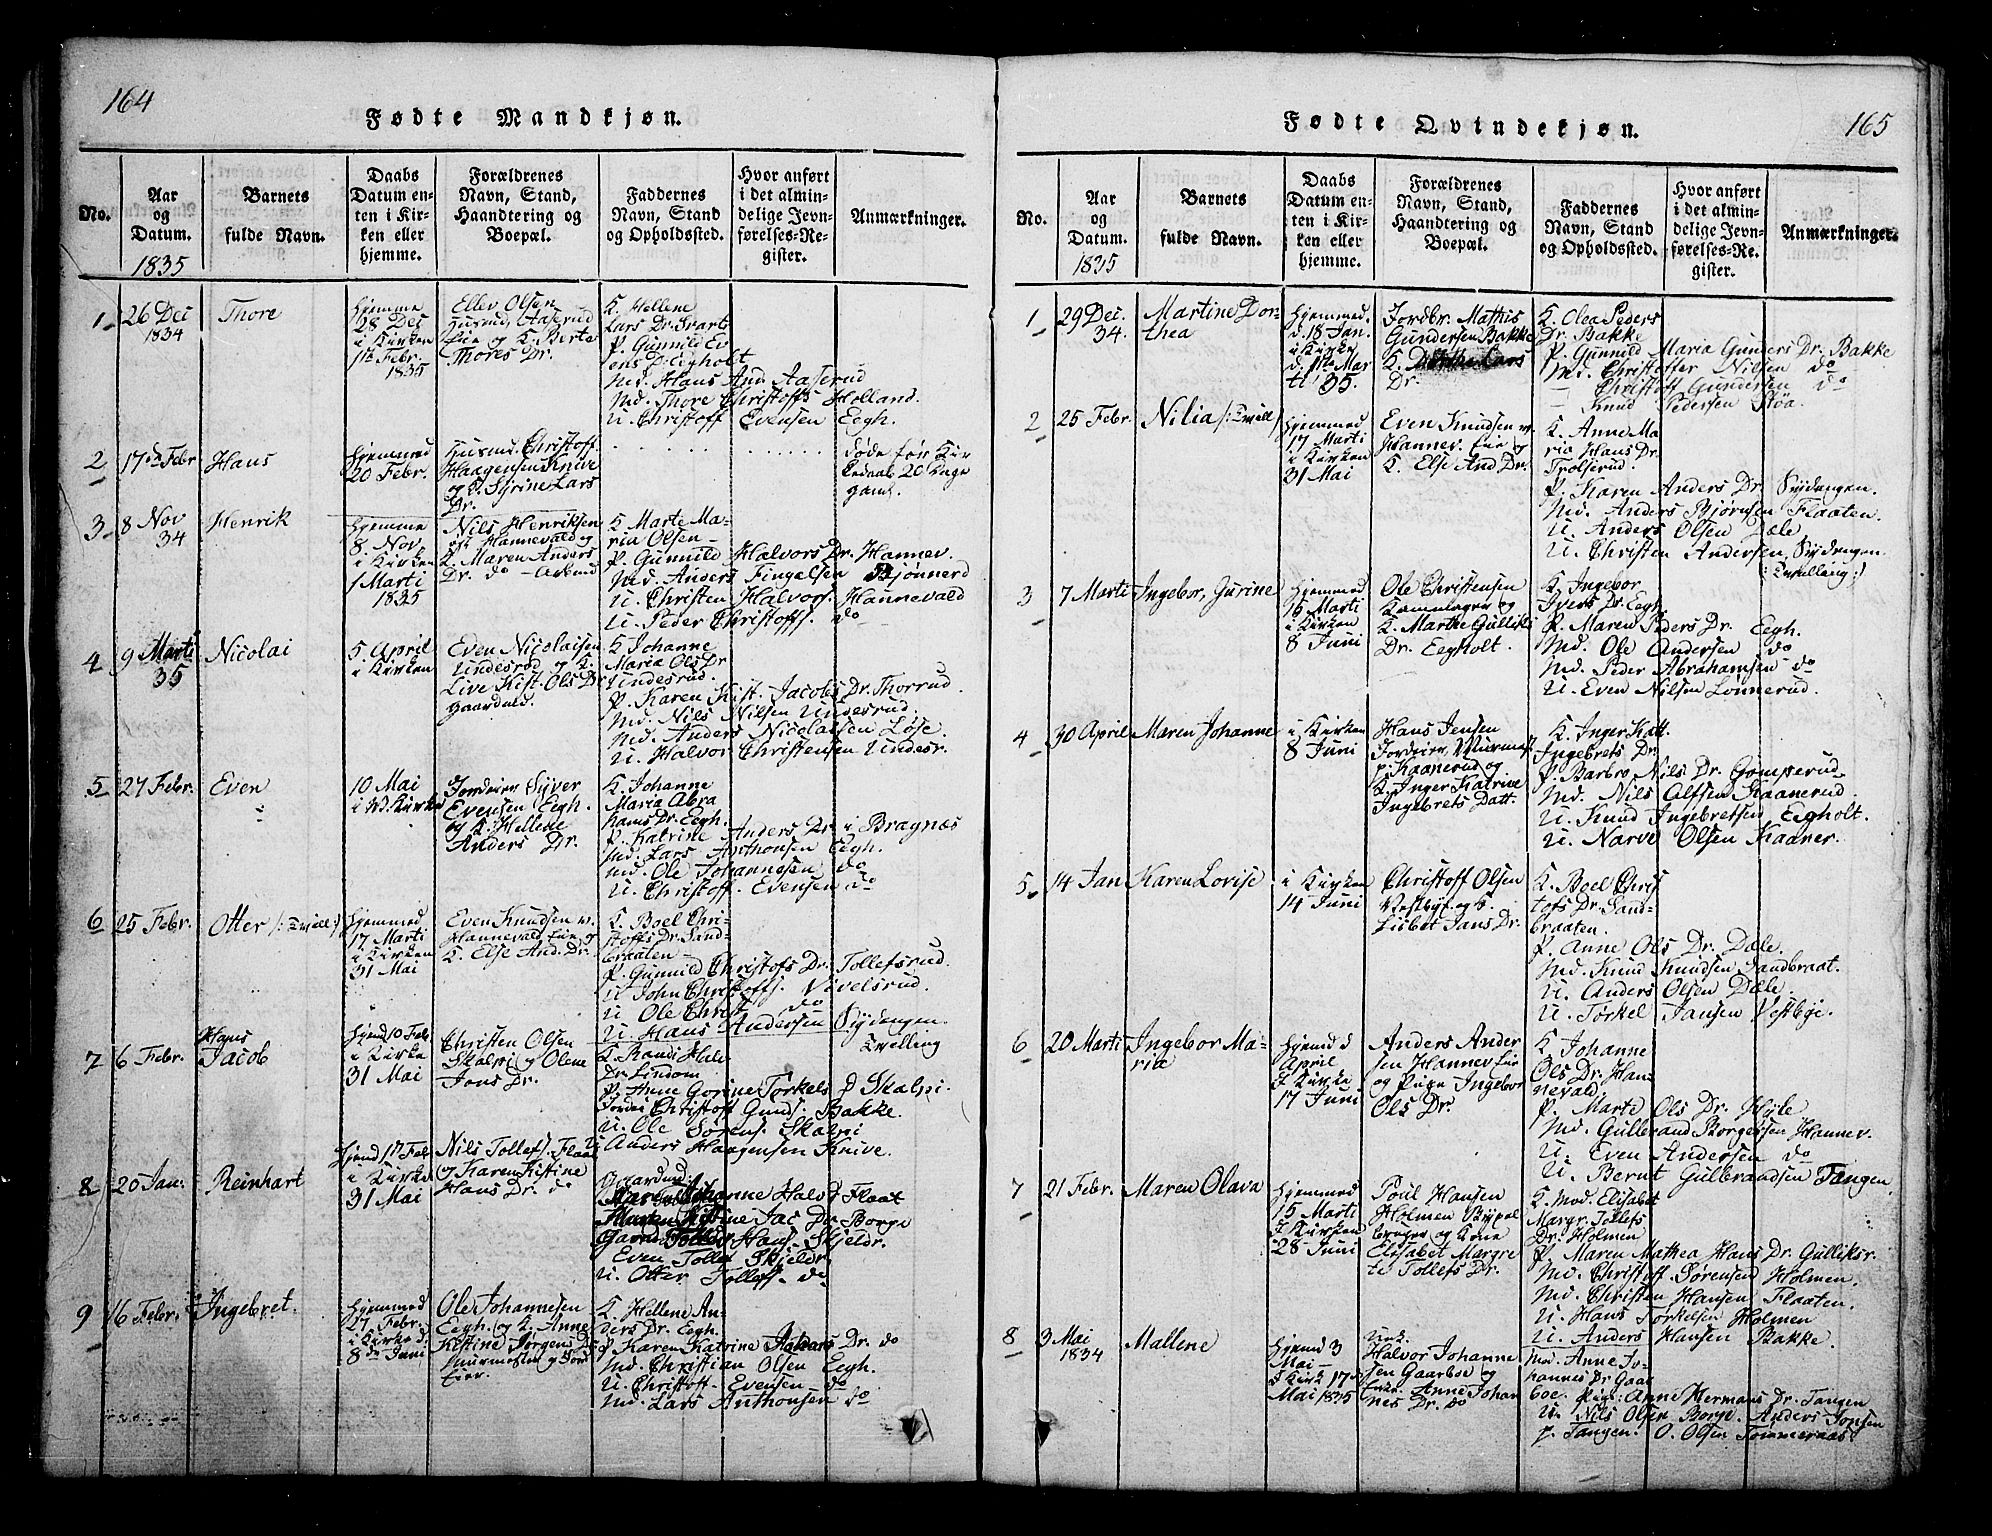 164
Fødte Mandkjøn.
No.
Aar
og
Datum.
1835
Barnets
fulde Navn.
Daabs
Datum en-
ten i Kir-
ken eller
hjemme.
Forældrenes
Navn, Stand,
Haandtering og
Boepæl.
Faddernes
Navn, Stand
og Opholdssted.
Hvor anført
i det almin-
delige Jevn-
førelses-Re-
gister.
Anmærkninger.
1
26 Dec
1834
Thore
Hjemme
28 Dec
i Kirken
1te Febr.
1835
Ellev Olsen
Husmd. Aaserud
Eie og K. Berte
Thores Dr.
K. Hellene
Lars Dr. Svarts
P. Gunnild Ev
ens D. Eegholt
Md. Hans And. Aaserud
Md. Thore Christoffs Holland.
U. Christoff Evensen Eegh.
2
17de Febr
Hans
Hjemmed
20 Febr.
Husmd. Christoff
Haagensen Knive
og K. Syrine Lars
Dr.
døde før Kir
kedaab 20 Dage
gaml.
3
8 Nov
34
Henrik
Hjemme
8. Nov.
i Kirken
1 Marti
1835
Nils Henriksen
Hannevald og
K. Maren Anders
Dr. do
K. Marte Ma-
ria Olsen
P. Gunnild Halvors Dr. Hannev.
Md. Anders Fingelsen Bjønnerd
U. Christen Halvors. Hannevald
U. Peder Christoffs. do
4
9 Marti
35
Nicolai
5 April
i Kirken
Even Nicolaisen
Undesrød og K.
Live Kist. Ols Dr
gaardmd.
K. Johanne
Maria Ols Dr
Undesrud.
P. Karen Kist. Jacobs Dr. Thorrud.
Md. Nils Nilsen Undesrud.
Md. Anders Nicolaisen Løse.
U. Halvor Christensen Undesr.
5
27 Febr.
Even
10 Mai
i W. Kirke
Jordeier Syver
Evensen Eegh.
og K. Hellene
Anders Dr.
K. Johanne
Maria Abra
hams Dr. Eegh.
P. Katrine Anders Dr. i Bragnæs
Md. Lars Anthonsen Eegh.
Md. Ole Johannesen do
U. Christoff. Evensen do
6
25 Febr.
Otter /: Tvill :/
Hjemmed
17 Marti
i Kirken
31 Mai
Even Knudsen w.
Hannevald Eie og
K. Else And. Dr.
K. Boel Chri-
stoffs Dr. Sand-
braaten
P. Gunnild Christofs Dr. Tollefsrud.
U John Christoffs. Vivelsrud.
U Ole Christ do
U. Hans Andersen Sydengen.
Tvelling
7
6 Febr.
Hans
Jacob
Hjemd 10 Feb
i Kirke
31 Mai
Christen Olsen
Skalpi og Olene
Jons Dr.
K. Randi Halv
Dr. Lindom
P. Anne Gorine Torkels D Skalpi.
Jordei Christoff Gunds. Bakke.
U. Ole Sørens. Skalpi
U Anders Haagensen Knive.
8
20 Jan:
Reinhart
Hjemd 17 Feb
i Kirke
31 Mai
Nils Tollefs. Flaat
og Karen Kistine
Hans Dr. do
Maren Johanne Halv D Flaat
Maren Kistine Jac Dr Borge
Gaard Tollev Hans. Skjeldr.
Even Tollev Skjeldr.
U. Otter Tollefs. do
9
16 Febr.
Ingebret.
Hjemmed
27 Febr.
i Kirke d.
8de Juni
Ole Johannesen
Eegh. og K. Anne
Kistine Jørgens Dr
Muurmester og Jord
eier.
K. Hellene An-
ders Dr. Eegh.
P Karen Katrine Dr. do
Md. Christian Olsen Eegh.
U. Christoff. Evensen do
Md. Lars Anthonsen do
165
Fødte Qvindekjøn.
No.
Aar
og
Datum.
1835
Barnets
fulde Navn.
Daabs
Datum en-
ten i Kir-
ken eller
hjemme.
Forældrenes
Navn, Stand,
Haandtering og
Boepæl.
Faddernes
Navn, Stand
og Opholdssted.
Hvor anført
i det almin-
delige Jevn-
førelses-Re-
gister.
Anmærkninger.
1
29 Dec.
34.
Martine Dor-
thea
Hjemmed.
d. 18 Jan.
i Kirke
d. 1te Mar
ti 35.
Jordbr. Mathis
Gundersen Bakke
K. Dorthe Lars
Dr.
K. Olea Peders
Dr. Bakke
P. Gunnild Maria Gunders Dr. Bakke
Md. Christoffer Nilsen do
— Christoff Gundersen do
— Knud Pedersen Støa.
2
25 Febr.
Nilia /: Tvill /
Hjemmed
17 Marti
i Kirken
31 Mai
Even Knudsen w.
Hannev. Eie og
K. Else And Dr.
K. Anne Ma
ria Hans Dr.
Trolserud.
P. Karen Anders Dr. Sydengen.
Md. Anders Bjørnsen Flaaten.
U. Anders Olsen Dæle
U. Christen Andersen, Sydengen
(: Tvilling :)
3
7 Marti
Ingebor, Gurine
Hjemmed
15 Marti
i Kirken
8 Juni
Ole Christensen
og
K. Marthe Gulliks
Dr. Eegholt.
K. Ingebor
Ivers Dr. Eegh
P. Maren Peders Dr. Eegh.
Md. Ole Andersen do
Md. Peder Abrahamsen do
U. Even Nilsen Lønnerud.
4
30 April
Maren Johanne
i Kirken
8 Juni
Hans Jensen
Jordeier, Muurmest.
p. Kaanerud og
K. Inger Katrine
Ingebrets Datt.
K. Inger Katt.
Ingebrets Dr.
P. Barbro Nils Dr. Gomperud
Md. Nils Alfsen Kaanerud.
U. Knud Ingebretsen Eegholt.
U. Narve Olsen Kaaner.
5
14 Jan
Karen Lovise
i Kirken
14 Juni
Christoff Olsen
Vestbye og K.
Lisbet Jans Dr.
K. Boel Chris
tofs Dr. Sand-
braaten.
P. Anne Ols Dr. Dæle.
Md. Knud Knudsen Sandbraat.
U. Anders Olsen Dæle.
U. Torkel Jansen Vestbye.
6
20 Marti
Ingebor Ma-
ria
Hjemd 5
April
I Kirke
17 Juni
Anders Ander
sen Hannev Eie
og Pige Ingebor
Ols Dr.
K. Johanne
Ols Dr. Han
nevald
P. Marte Ols Dr. Hyle
Md. Gulbrand Borgersen Hannev.
U. Even Andersen do
U. Bernt Gulbrandsen Tangen
7
21 Febr.
Maren Olava
Hjemmed
15 Marti
I Kirken
28 Juni
Poul Hansen
Holmen Bypæl
bruger og Kone
Elisabet Margre
te Tollefs Dr.
K. Mod. Elisabet
Margr. Tollefs
Dr. Holmen
P. Maren Mathea Hans Dr. Gulliksr.
Md. Christoff. Sørensen Holmen.
Md. Christen Hansen Flaaten.
U. Hans Torkelsen Holmen
U. Anders Hansen Bakke.
8
3 Mai
1834
Mallene
Hjemd 3
Mai
I Kirk 17
Mai 1835
Halvor Johanne
sen Gaarboe og
Anne Johan
nes Dr. do
Mod. Anne Jo-
hannes Dr Gaar
boe. Pige: Anne Hermans Dr. Tangen
U. Nils Olsen Borge. Anders Jonsen
p. Tangen. O. Olsen Tommeraas.